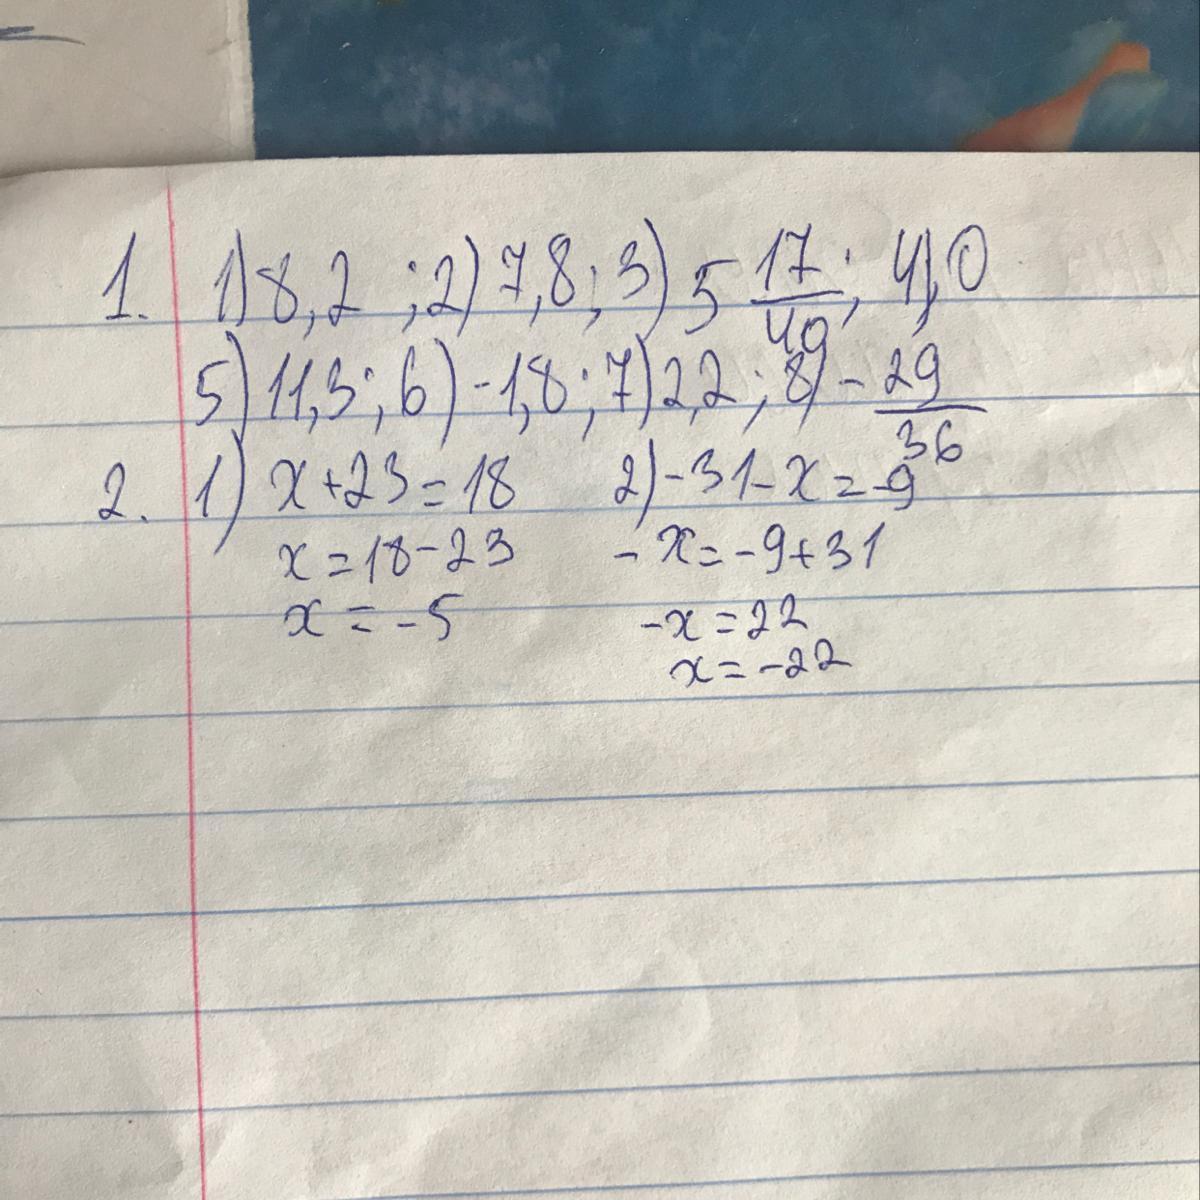 1. 1) 8,2 ; 2) 7,8 ; 3) 5 17/49 ; 4) 0
5) 11,3 ; 6) -1,8 ; 7) 2,2 ; 8) - 29/36
2. 1) x+23=18 2) -31-x=-9
x=18-23 -x=-9+31
x=-5 -x=22
x=-22